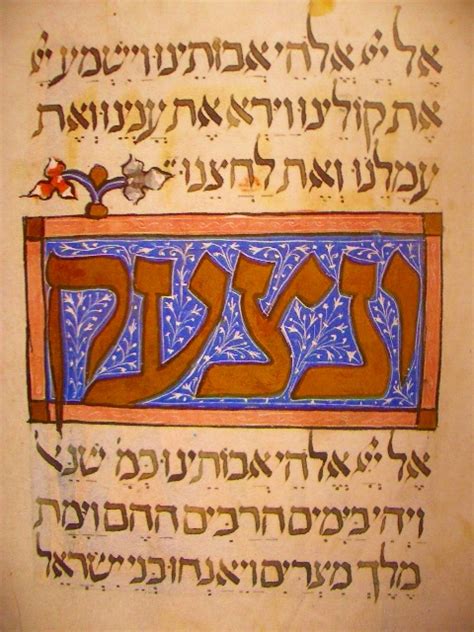 אל יי אלהי אבותינו וישמע יי
את קולינו וירא את ענינו ואת
עמלנו ואת לחצנו׃
ונצעק
אל יי אלהי אבותינו כמ׳ שנא׳
ויהי בימים הרבים ההם וימת
מלך מצרים ויאנחו בני ישראל